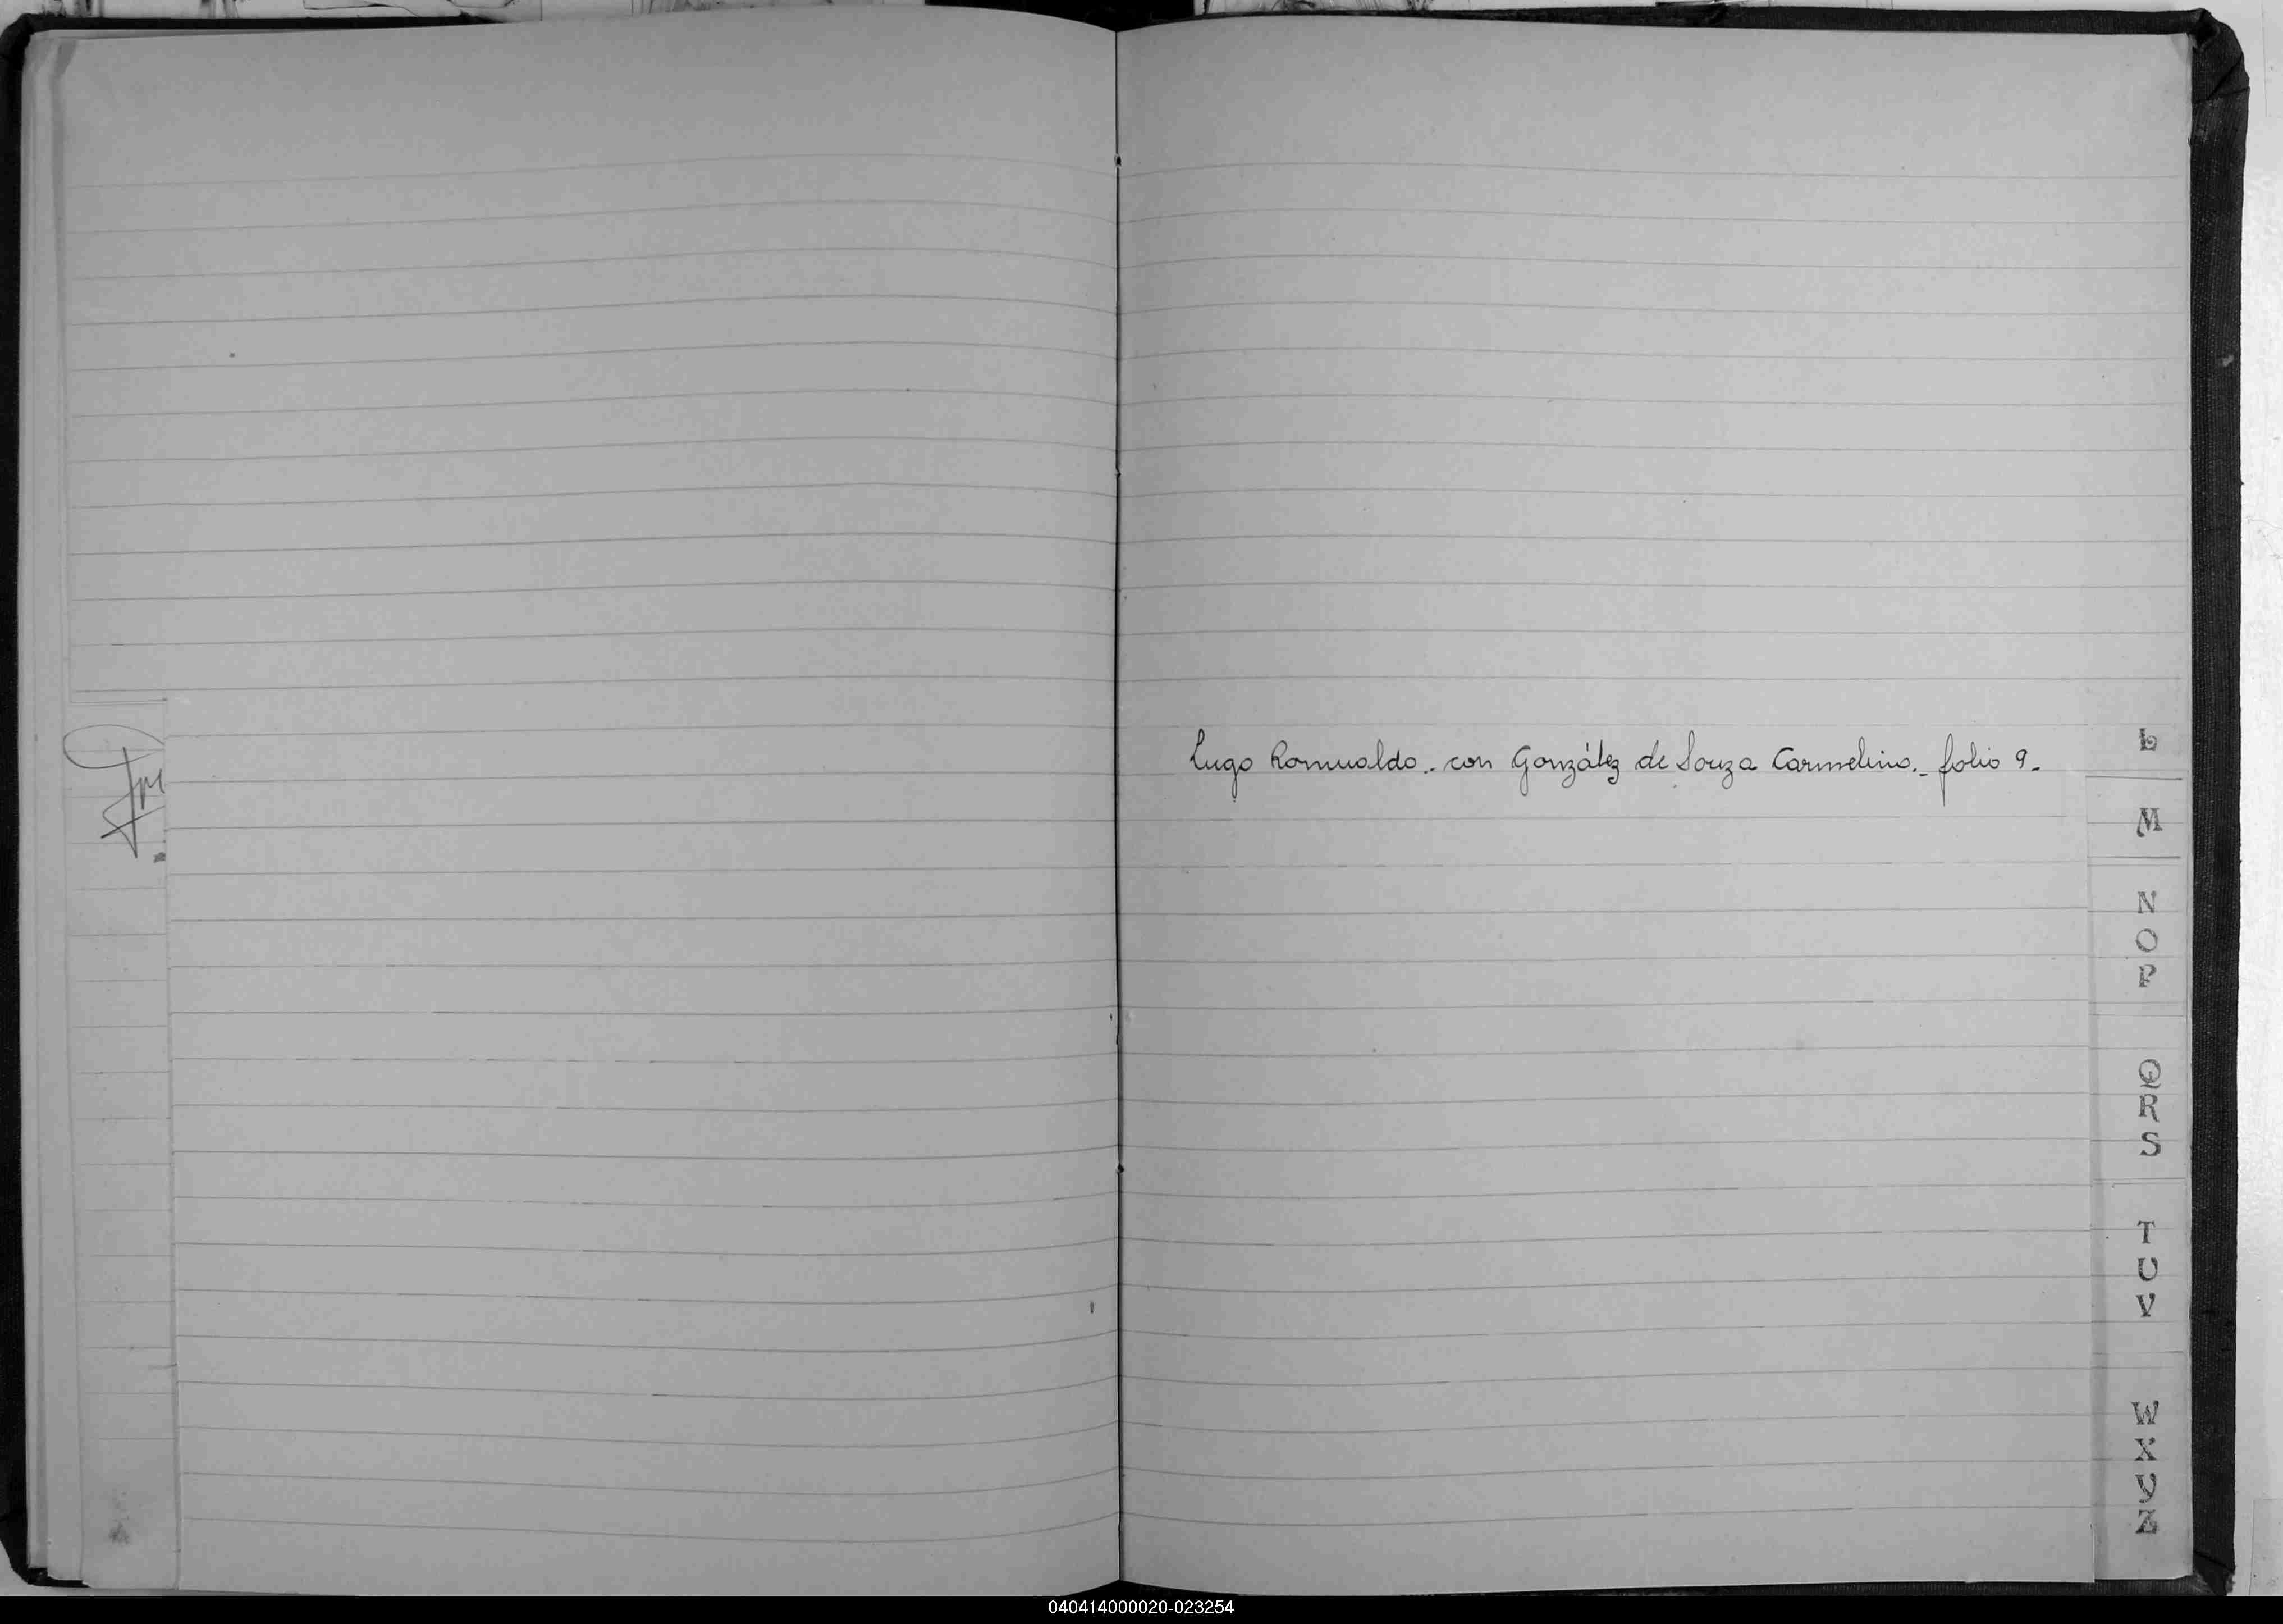 Lugo Romualdo.. con González de Souza Carmelino.- folio 9.-
L
M
N
O
P
Q
R
S
T
U
V
W
X
Y
Z
040414000020-023254